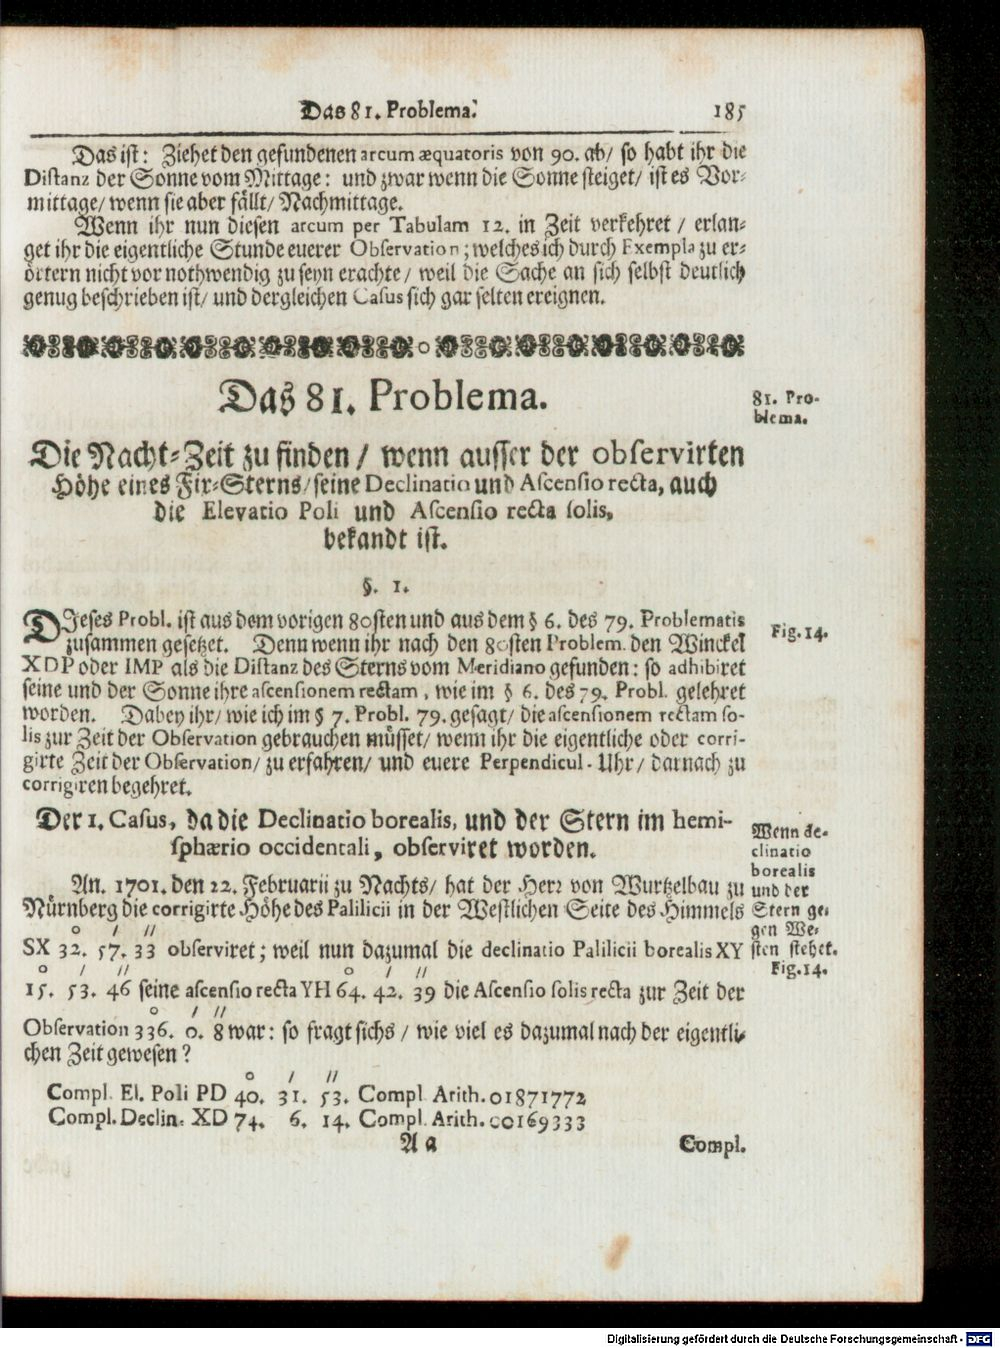 Das 81. Problema. 185
Das ist: Ziehet den gefundenen arcum æquatoris von 90. ab/ so habt ihr die
Distanz der Sonne vom Mittage: und zwar wenn die Sonne steiget/ ist es Vor-
mittage/ wenn sie aber fällt/ Nachmittage.
Wenn ihr nun diesen arcum per Tabulam 12. in Zeit verkehret / erlan-
get ihr die eigentliche Stunde euerer Observation; welches ich durch Exempla zu er-
örtern nicht vor nothwendig zu seyn erachte/ weil die Sache an sich selbst deutlich
genug beschrieben ist/ und dergleichen Casus sich gar selten ereignen.
Das 81. Problema.
81. Pro-
blema.
Die Nacht-Zeit zu finden / wenn ausser der observirten
Höhe eines Fix-Sterns/ seine Declinatio und Ascensio recta, auch
die Elevatio Poli und Ascensio recta solis,
bekandt ist.
§. 1.
DIeses Probl. ist aus dem vorigen 80sten und aus dem § 6. des 79. Problematis
Fig. 14.
zusammen gesetzet. Denn wenn ihr nach den 80sten Problem. den Winckel
XDP oder IMP als die Distanz des Sterns vom Meridiano gefunden: so adhibiret
seine und der Sonne ihre ascensionem rectam, wie im § 6. des 79. Probl. gelehret
worden. Dabey ihr/ wie ich im § 7. Probl. 79. gesagt/ die ascensionem rectam so-
lis zur Zeit der Observation gebrauchen müsset/ wenn ihr die eigentliche oder corri-
girte Zeit der Observation/ zu erfahren/ und euere Perpendicul-Uhr/ darnach zu
corrigiren begehret.
Der 1. Casus, da die Declinatio borealis, und der Stern im hemi-
sphærio occidentali, observiret worden.
Wenn de-
clinatio
borealis
und der
Stern ge-
gen We-
sten stehet.
Fig. 14.
An. 1701. den 22. Februarii zu Nachts/ hat der Herr von Wurtzelbau zu
Nürnberg die corrigirte Höhe des Palilicii in der Westlichen Seite des Himmels
o / //
SX 32. 57. 33 observiret; weil nun dazumal die declinatio Palilicii borealis XY
o / // o / //
15. 53. 46 seine ascensio recta YH 64. 42. 39 die Ascensio solis recta zur Zeit der
o / //
Observation 336. 0. 8 war: so fragt sichs / wie viel es dazumal nach der eigentli-
chen Zeit gewesen?
o / //
Compl. El. Poli PD 40. 31. 53. Compl Arith. 01871772
Compl. Declin. XD 74. 6. 14. Compl. Arith. 00169333
A a Compl.
Digitalisierung gefördert durch die Deutsche Forschungsgemeinschaft - DFG